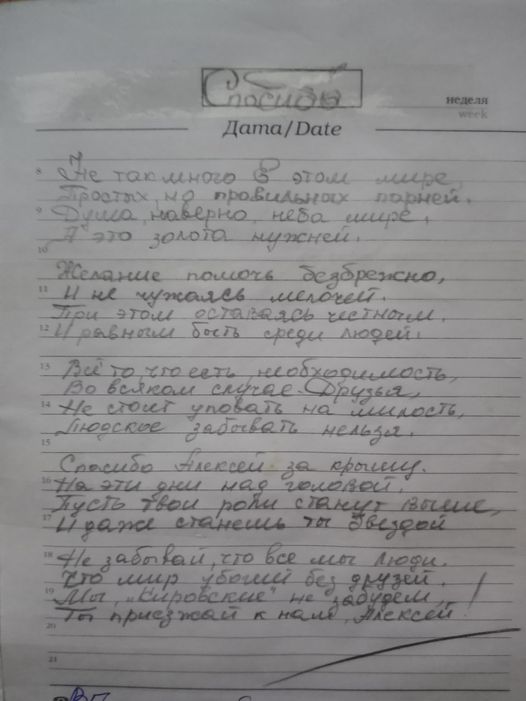 Спасибо
неделя
week
Дата/Date
8 Не так много в этом мире,
Простых, но правильных парней.
9 Душа, наверно, неба шире,
А это золота нужней.
10
Желание помочь безбрежно,
11 И не чужаясь мелочей.
При этом оставаясь честным,
12 И равным быть среди людей.
13 Всё то, что есть необходимость,
Во всяком случае. Друзья,
14 Не стоит уповать на милость,
Людское забывать нельзя.
15
Спасибо Алексей за крышу.
16 На эти дни над головой.
Пусть твои роли станут выше,
17 И даже станешь ты Звездой
18 Не забывай, что все мы люди.
Что мир убогий без друзей.
19 Мы, „Кировские" не забудем,
Ты приезжай к нам, Алексей!
20
21